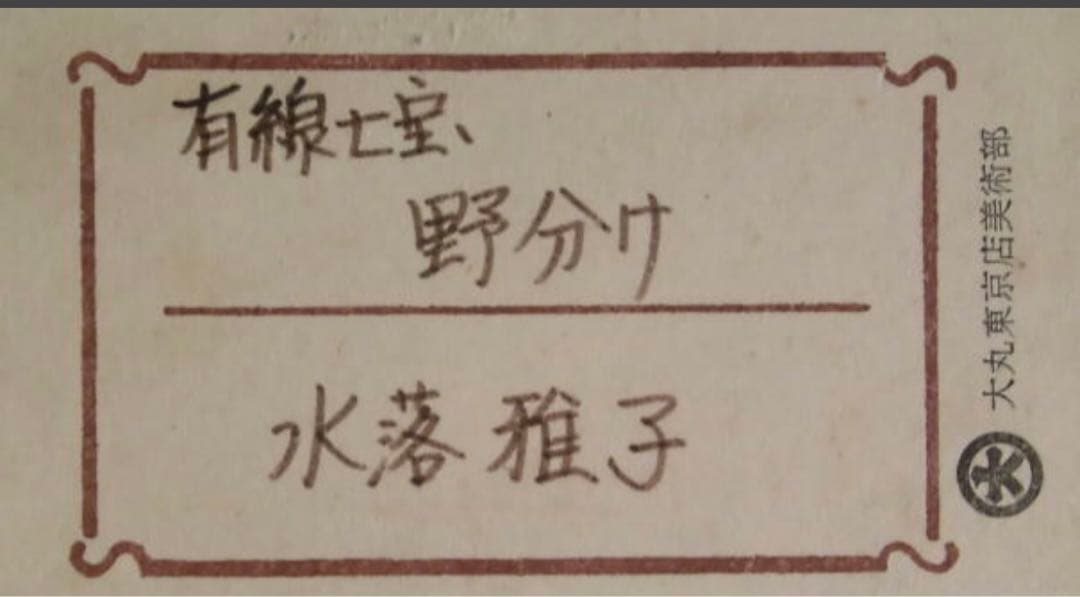 有線七宝、
野分け
水落 雅子
大丸東京店美術部
大